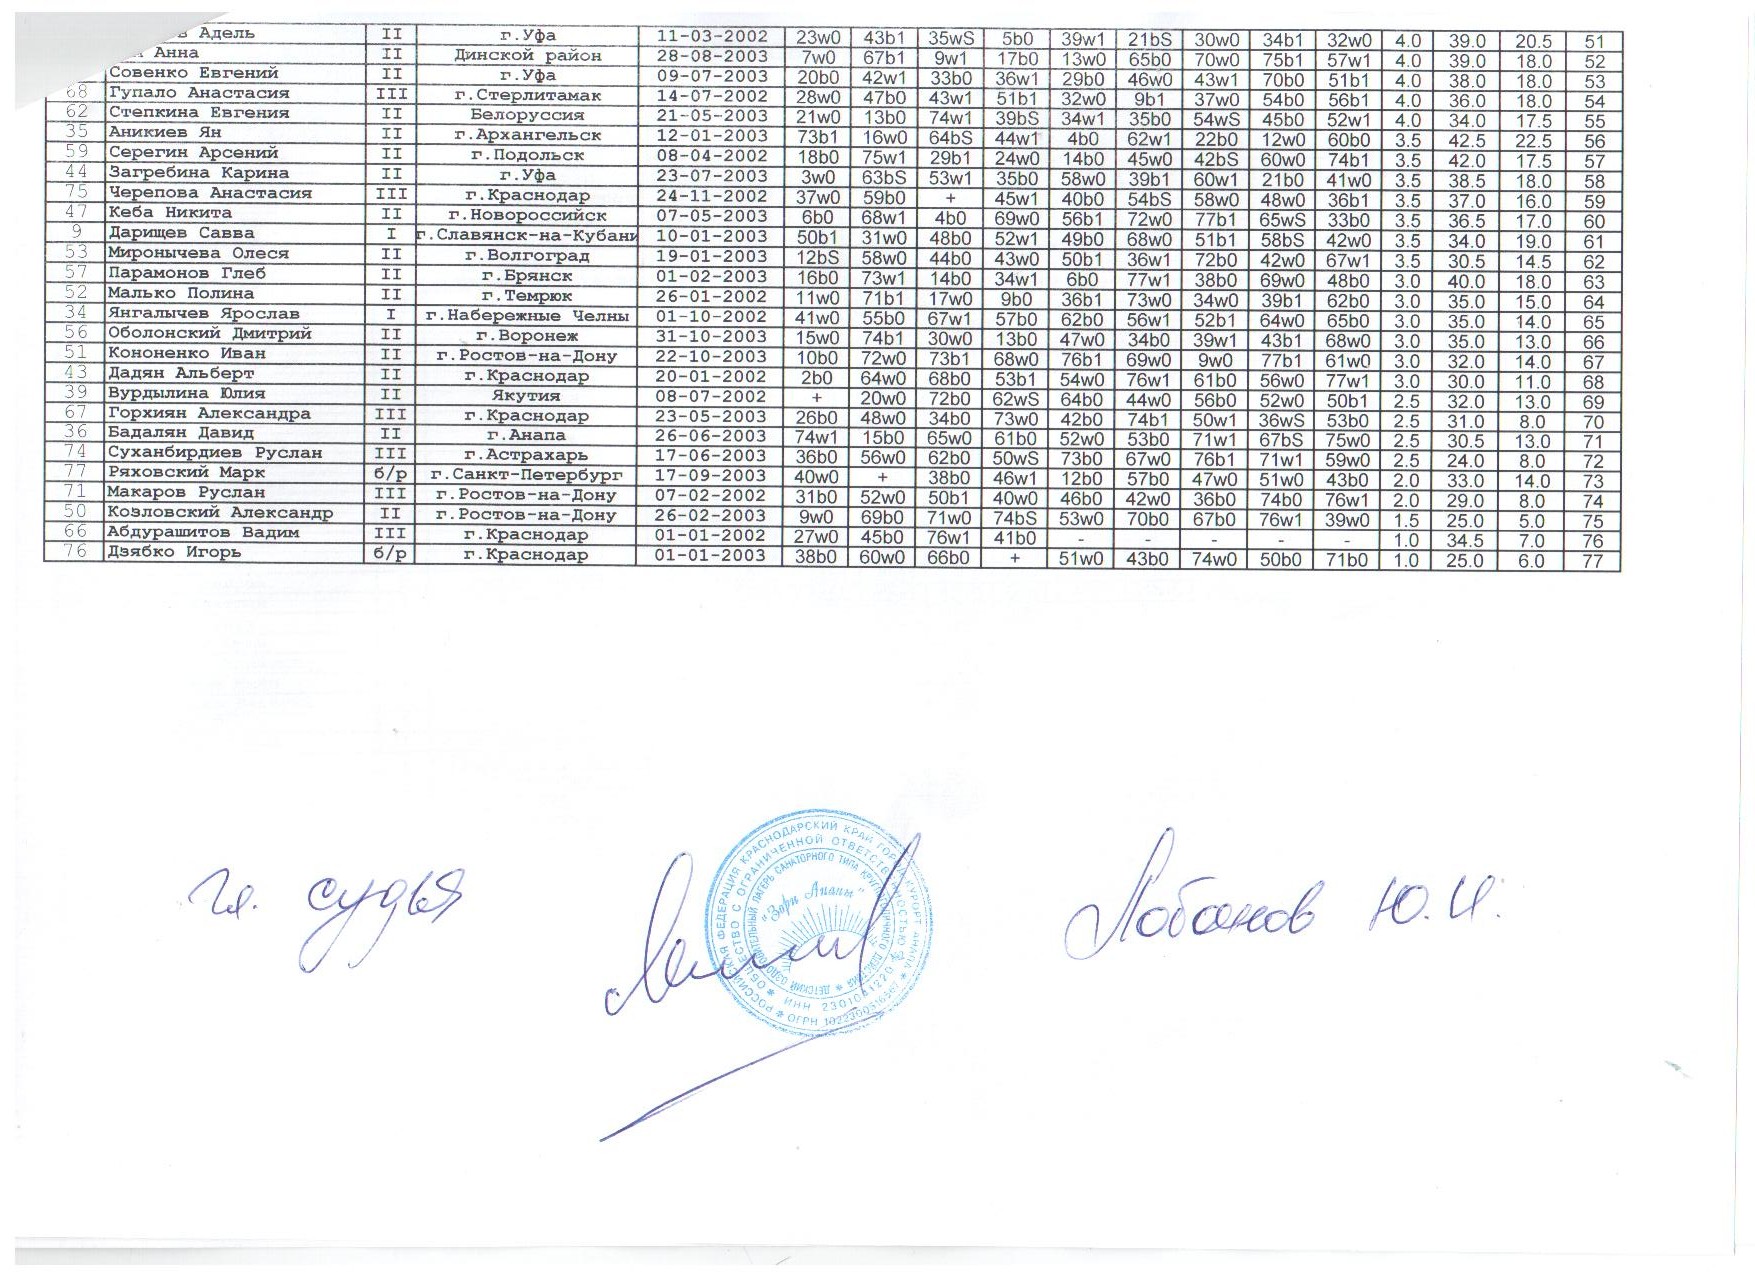 Адель II г.Уфа 11-03-2002 23w0 43b1 35wS 5b0 39w1 21bS 30w0 34b1 32w0 4.0 39.0 20.5 51
Анна II Динской район 28-08-2003 7w0 67b1 9w1 17b0 13w0 65b0 70w0 75b1 57w1 4.0 39.0 18.0 52
Совенко Евгений II г.Уфа 09-07-2003 20b0 42w1 33b0 36w1 29b0 46w0 43w1 70b0 51b1 4.0 38.0 18.0 53
68 Гупало Анастасия III г.Стерлитамак 14-07-2002 28w0 47b0 43w1 51b1 32w0 9b1 37w0 54b0 56b1 4.0 36.0 18.0 54
62 Степкина Евгения II Белоруссия 21-05-2003 21w0 13b0 74w1 39bS 34w1 35b0 54wS 45b0 52w1 4.0 34.0 17.5 55
35 Аникиев Ян II г.Архангельск 12-01-2003 73b1 16w0 64bS 44w1 4b0 62w1 22b0 12w0 60b0 3.5 42.5 22.5 56
59 Серегин Арсений II г.Подольск 08-04-2002 18b0 75w1 29b1 24w0 14b0 45w0 42bS 60w0 74b1 3.5 42.0 17.5 57
44 Загребина Карина II г.Уфа 23-07-2003 3w0 63bS 53w1 35b0 58w0 39b1 60w1 21b0 41w0 3.5 38.5 18.0 58
75 Черепова Анастасия III г.Краснодар 24-11-2002 37w0 59b0 + 45w1 40b0 54bS 58w0 48w0 36b1 3.5 37.0 16.0 59
47 Кеба Никита II г.Новороссийск 07-05-2003 6b0 68w1 4b0 69w0 56b1 72w0 77b1 65wS 33b0 3.5 36.5 17.0 60
9 Дарищев Савва I г.Славянск-на-Кубани 10-01-2003 50b1 31w0 48b0 52w1 49b0 68w0 51b1 58bS 42w0 3.5 34.0 19.0 61
53 Миронычева Олеся II г.Волгоград 19-01-2003 12bS 58w0 44b0 43w0 50b1 36w1 72b0 42w0 67w1 3.5 30.5 14.5 62
57 Парамонов Глеб II г.Брянск 01-02-2003 16b0 73w1 14b0 34w1 6b0 77w1 38b0 69w0 48b0 3.0 40.0 18.0 63
52 Малько Полина II г.Темрюк 26-01-2002 11w0 71b1 17w0 9b0 36b1 73w0 34w0 39b1 62b0 3.0 35.0 15.0 64
34 Янгалычев Ярослав I г.Набережные Челны 01-10-2002 41w0 55b0 67w1 57b0 62b0 56w1 52b1 64w0 65b0 3.0 35.0 14.0 65
56 Оболонский Дмитрий II г.Воронеж 31-10-2003 15w0 74b1 30w0 13b0 47w0 34b0 39w1 43b1 68w0 3.0 35.0 13.0 66
51 Кононенко Иван II г.Ростов-на-Дону 22-10-2003 10b0 72w0 73b1 68w0 76b1 69w0 9w0 77b1 61w0 3.0 32.0 14.0 67
43 Дадян Альберт II г.Краснодар 20-01-2002 2b0 64w0 68b0 53b1 54w0 76w1 61b0 56w0 77w1 3.0 30.0 11.0 68
39 Вурдылина Юлия II Якутия 08-07-2002 + 20w0 72b0 62wS 64b0 44w0 56b0 52w0 50b1 2.5 32.0 13.0 69
67 Горхиян Александра III г.Краснодар 23-05-2003 26b0 48w0 34b0 73w0 42b0 74b1 50w1 36wS 53b0 2.5 31.0 8.0 70
36 Бадалян Давид II г.Анапа 26-06-2003 74w1 15b0 65w0 61b0 52w0 53b0 71w1 67bS 75w0 2.5 30.5 13.0 71
74 Суханбирдиев Руслан III г.Астрахарь 17-06-2003 36b0 56w0 62b0 50wS 73b0 67w0 76b1 71w1 59w0 2.5 24.0 8.0 72
77 Ряховский Марк б/р г.Санкт-Петербург 17-09-2003 40w0 + 38b0 46w1 12b0 57b0 47w0 51w0 43b0 2.0 33.0 14.0 73
71 Макаров Руслан III г.Ростов-на-Дону 07-02-2002 31b0 52w0 50b1 40w0 46b0 42w0 36b0 74b0 76w1 2.0 29.0 8.0 74
50 Козловский Александр II г.Ростов-на-Дону 26-02-2003 9w0 69b0 71w0 74bS 53w0 70b0 67b0 76w1 39w0 1.5 25.0 5.0 75
66 Абдурашитов Вадим III г.Краснодар 01-01-2002 27w0 45b0 76w1 41b0 - - - - - 1.0 34.5 7.0 76
76 Дзябко Игорь б/р г.Краснодар 01-01-2003 38b0 60w0 66b0 + 51w0 43b0 74w0 50b0 71b0 1.0 25.0 6.0 77
РОССИЙСКАЯ ФЕДЕРАЦИЯ КРАСНОДАРСКИЙ КРАЙ ГОРОД-КУРОРТ АНАПА
ОБЩЕСТВО С ОГРАНИЧЕННОЙ ОТВЕТСТВЕННОСТЬЮ
ДЕТСКИЙ ОЗДОРОВИТЕЛЬНЫЙ ЛАГЕРЬ САНАТОРНОГО ТИПА КРУГЛОГОДИЧНОГО ДЕЙСТВИЯ
"Зори Анапы"
ИНН
ОГРН
гл. судья Лобанов Ю.И.